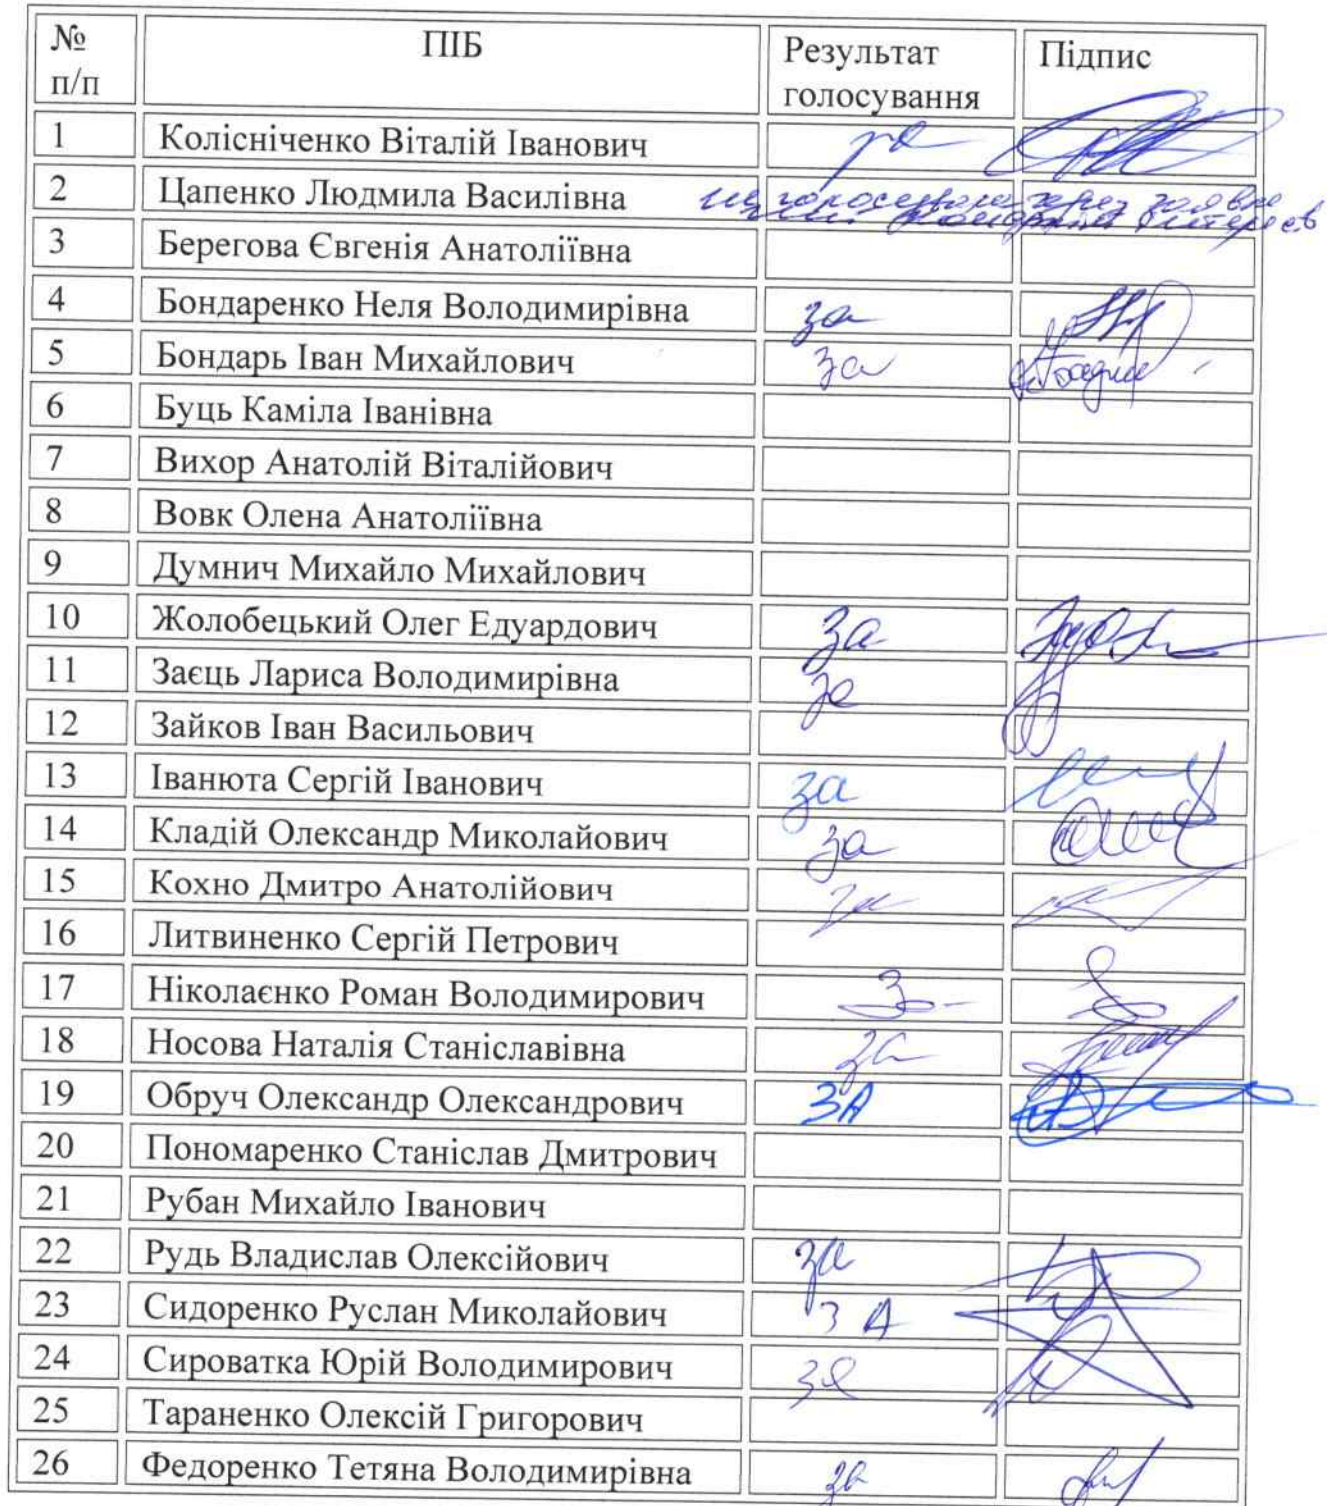 № п/п ПІБ Результат голосування Підпис
1 Колісніченко Віталій Іванович за
2 Цапенко Людмила Василівна не голосувала через заяву
інтересів
3 Берегова Євгенія Анатоліївна
4 Бондаренко Неля Володимирівна за
5 Бондарь Іван Михайлович за
6 Буць Каміла Іванівна
7 Вихор Анатолій Віталійович
8 Вовк Олена Анатоліївна
9 Думнич Михайло Михайлович
10 Жолобецький Олег Едуардович за
11 Заєць Лариса Володимирівна за
12 Зайков Іван Васильович
13 Іванюта Сергій Іванович за
14 Кладій Олександр Миколайович за
15 Кохно Дмитро Анатолійович за
16 Литвиненко Сергій Петрович
17 Ніколаєнко Роман Володимирович
18 Носова Наталія Станіславівна за
19 Обруч Олександр Олександрович ЗА
20 Пономаренко Станіслав Дмитрович
21 Рубан Михайло Іванович
22 Рудь Владислав Олексійович за
23 Сидоренко Руслан Миколайович ЗА
24 Сироватка Юрій Володимирович за
25 Тараненко Олексій Григорович
26 Федоренко Тетяна Володимирівна за